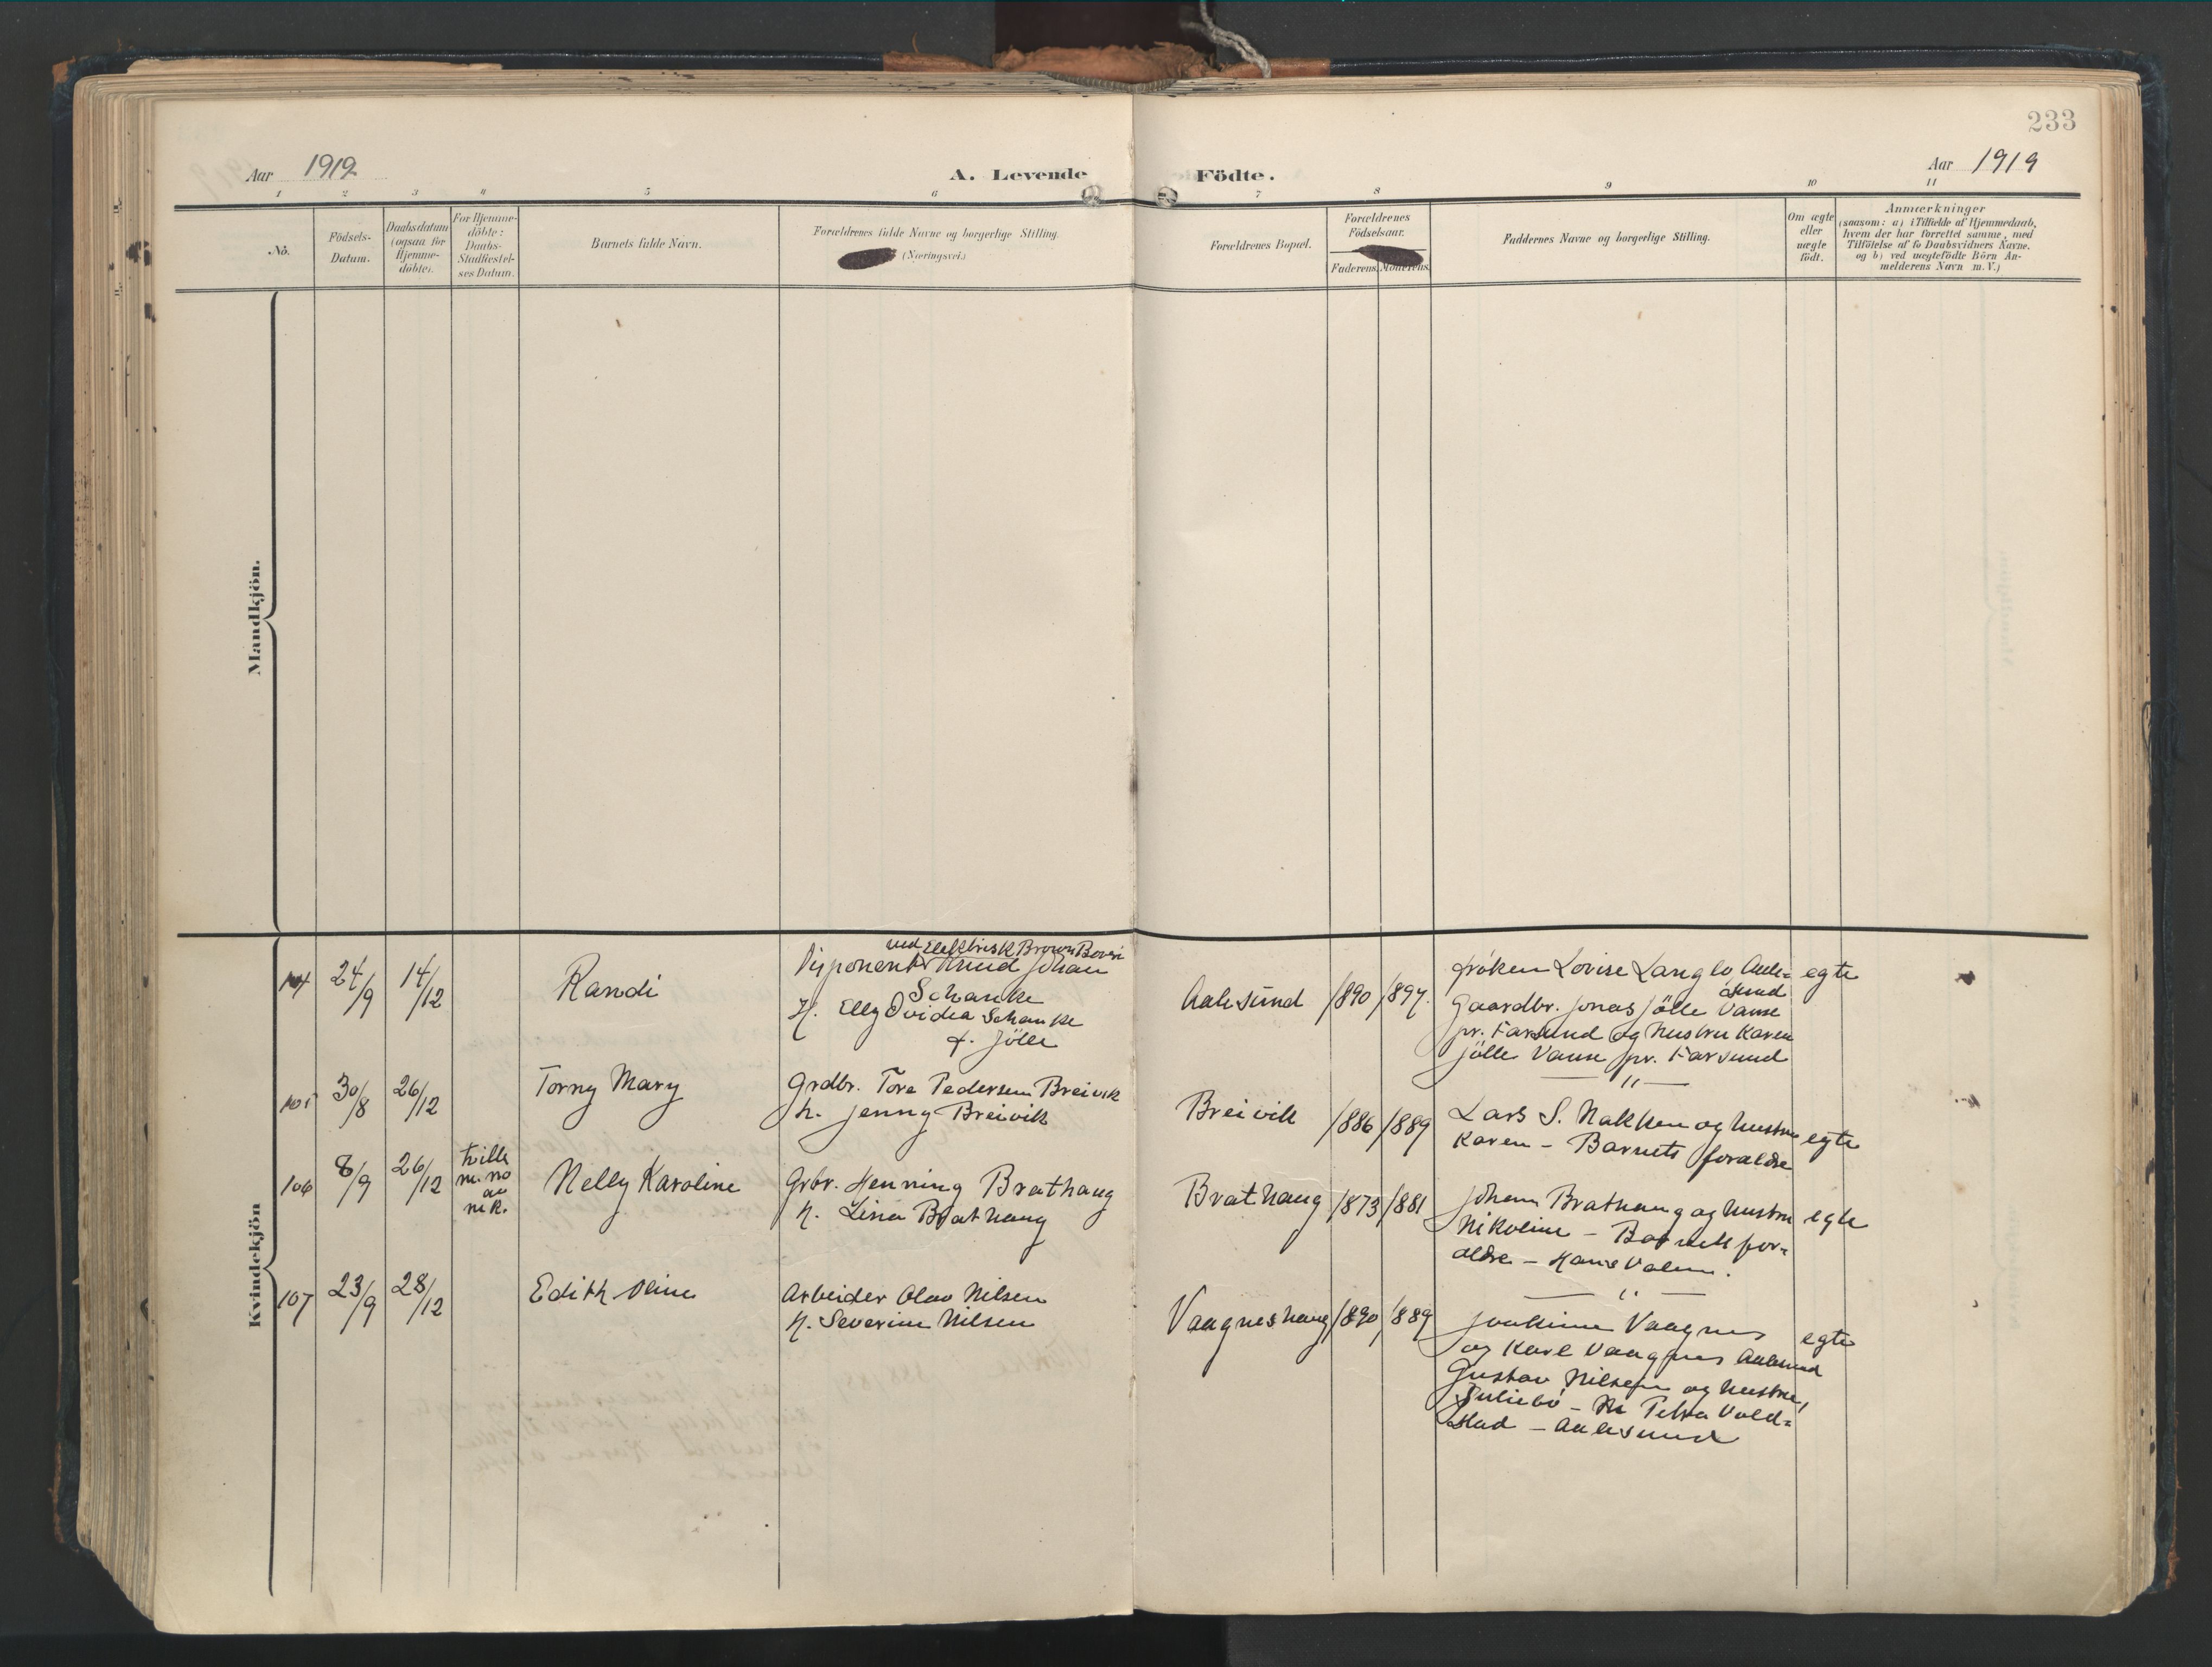 233
Aar 1919
A. Levende Födte.
Aar 1919
1 2 3 4 5 6 7 8 9 10 11
No.
Födsels-
Datum.
Daabsdatum
(ogsaa for
Hjemme-
döbte).
For Hjemme-
döbte:
Daabs-
Stadfæstel-
ses Datum.
Barnets fulde Navn.
Forældrenes fulde Navne og borgerlige Stilling.
(Næringsvei.)
Forældrenes Bopæl.
Forældrenes
Födselsaar.
Faderens. Moderens.
Faddernes Navne og borgerlige Stilling.
Om ægte
eller
uægte
födt.
Anmærkninger
(saasom: a) i Tilfælde af Hjemmedaab,
hvem der har forrettet samme, med
Tilföielse af to Daabsvidners Navne.
og b) ved uægtefödte Börn An-
melderens Navn m. V.)
Mandkjön.
Kvindekjön
24/9 14/12
Randi
ved Elektrisk Brown Boveri
Disponent Knud Johan
Schanke
H. Elly Ovidea Schanke
f. Jölle
Aalesund 1890 1897.
fröken Lovise Langlo Aale=
sund
Gaardbr. Jonas Jölle Vanse
pr. Farsund og hustru Karen
Jölle Vanse pr. Farsund
egte
— " —
105 30/8 26/12
Torny Mary
Grdbr. Tore Pedersen Breivik
h. Jenny Breivik
Breivik 1886 1889
Lars S. Nakken og hustru
Karen - Barnets foraldre
egte
106 8/9 26/12
tvilli
m. no
m k.
Nelly Karoline
Grbr. Henning Brathaug
H. Lina Brathaug
Brathaug 1873 1881
Johan Brathaug og hustru
Nikoline - Barnets for=
aldre - Hans Valen.
egte
— " —
107 23/9 28/12
Edith
Arbeider Olav Nilsen
H. Severine Nilsen
Vaagneshaug 1890 1889
Joakime Vaagnes
og Karl Vaagnes Aalesund
Gustav Nilsen og hustru,
Petra Vold=
stad - Aalesund
egte